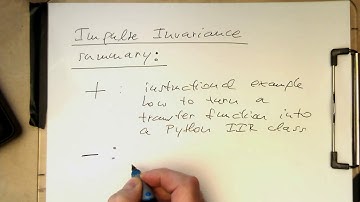 Impulse Invariance
summary:
+ : instructional example
how to turn a
transfer function into
a Python IIR class
− :